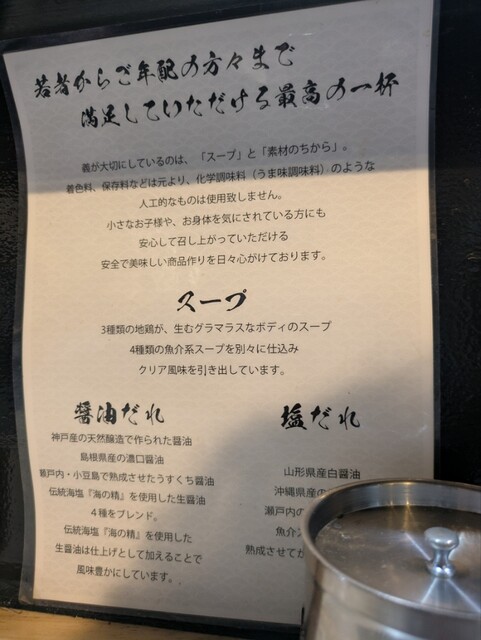 若者からご年配の方々まで
満足していただける最高の一杯
義が大切にしているのは、「スープ」と「素材のちから」。
着色料、保存料などは元より、化学調味料（うま味調味料）のような
人工的なものは使用致しません。
小さなお子様や、お身体を気にされている方にも
安心して召し上がっていただける
安全で美味しい商品作りを日々心がけております。
スープ
3種類の地鶏が、生むグラマラスなボディのスープ
4種類の魚介系スープを別々に仕込み
クリア風味を引き出しています。
醤油だれ
神戸産の天然醸造で作られた醤油
島根県産の濃口醤油
瀬戸内・小豆島で熟成させたうすくち醤油
伝統海塩『海の精』を使用した生醤油
４種をブレンド。
伝統海塩『海の精』を使用した
生醤油は仕上げとして加えることで
風味豊かにしています。
塩だれ
山形県産白醤油
沖縄県産の
瀬戸内の
魚介
熟成させてか